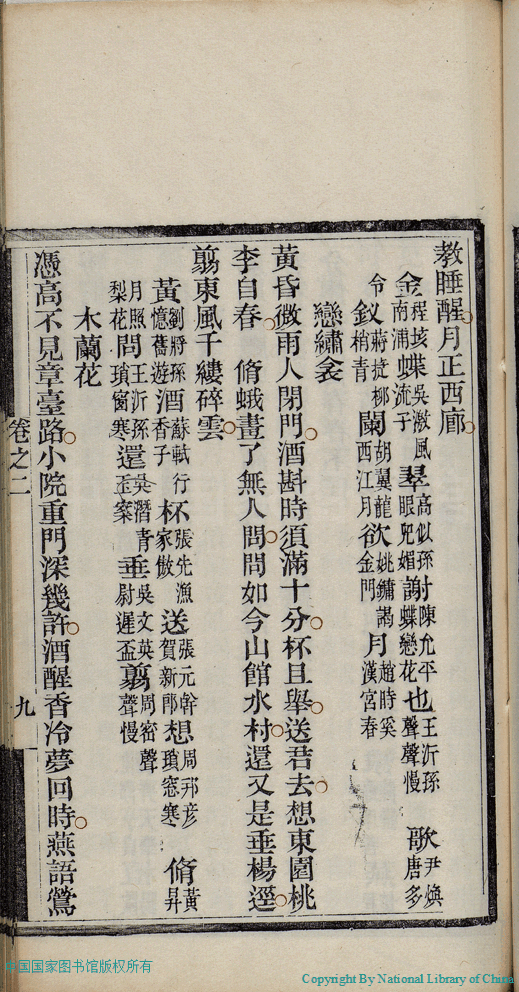 教睡醒月正西廊
金程垓南浦蝶吳潡風流子翠高似孫眼兒媚謝陳允平蝶戀花也王沂孫聲聲慢歌尹煥唐多
令釵蔣捷柳梢青闌胡翼龍西江月欲姚鏞謁金門月趙時奚漢宮春
戀繡衾
黃昏微雨人閉門酒斟時須滿十分杯且舉送君去想東園桃
李自春 脩蛾畫了無人問問如今山館水村還又是垂楊逕
翦東風千縷碎雲
黃劉將孫憶舊遊酒蘇軾行香子杯張先漁家傲送張元幹賀新郎想周邦彥瑣窗寒脩黃昇
月照梨花問王沂孫瑣窗寒還吳潛青玉案垂吳文英尉遲盃翦周密聲聲慢
木蘭花
憑高不見章臺路小院重門深幾許酒醒香冷夢回時燕語鶯
卷之二
九
中国国家图书馆版权所有
Copyright By National Library of China